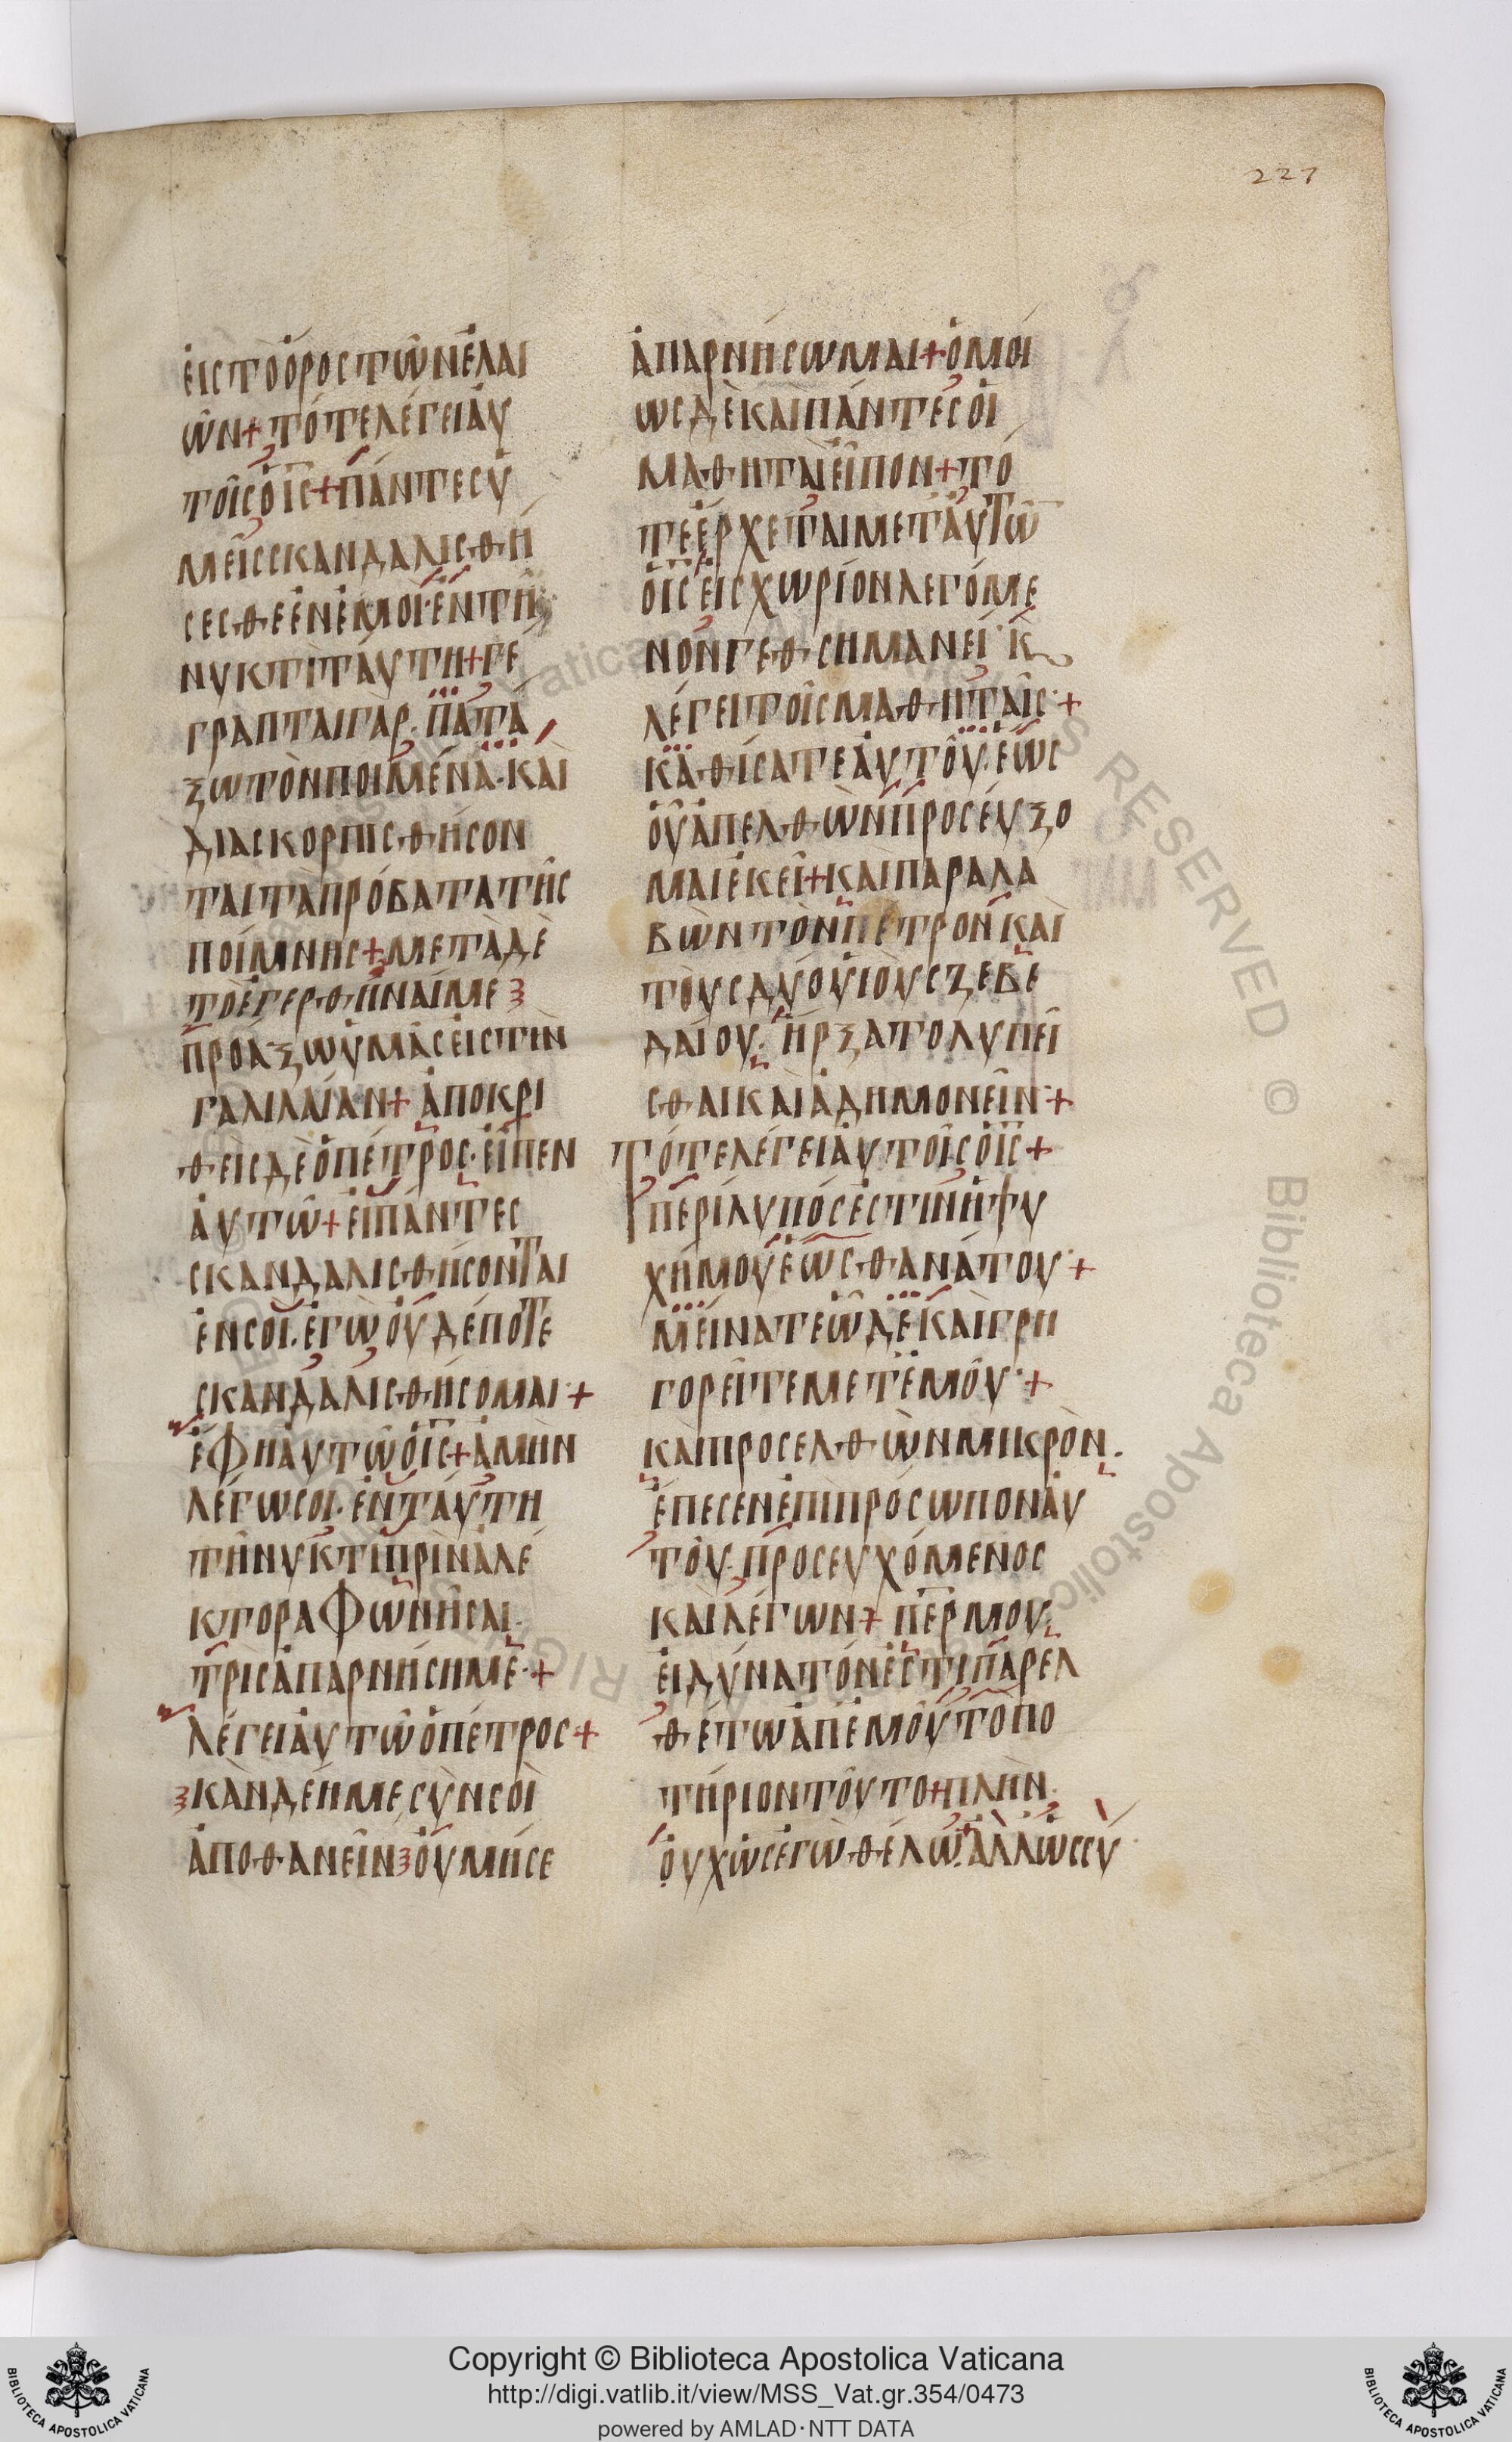 227
ἐις τὸ ὄρος τῶν ἐλαι
ῶν + τότε λέγει ἀυ
τοῖς ὁ ῙΣ + πάντες ὑ
μεῖς σκανδαλισθή
σεσθε ἐν ἐμοί· ἐν τῆ
νυκτὶ τάυτη + γέ
γραπται γάρ· πατά
ξω τὸν ποιμένα· καὶ
διασκορπισθήσον
ται τὰ πρόβατα τῆς
ποίμνης + μετὰ δὲ
τὸ ἐγερθῆναί με
προάξω ὑμᾶς ἐις τὴν
γαλιλαίαν + ἀποκρι
θεὶς δὲ ὁ πέτρος· εἶπεν
ἀυτῶ + εἰ πάντες
σκανδαλισθήσονται
ἐν σοί· ἐγὼ ὀυδέποτε
σκανδαλισθήσομαι· +
ἔφη ἀυτῶ ὁ ῙΣ + ἀμὴν
λέγω σοι· ἐν τάυτη
τῆ νυκτὶ πρὶν ἀλέ
κτορα φωνῆσαι·
τρὶς ἀπαρνήση με· +
λέγει ἀυτῶ ὁ πέτρος +
κὰν δέη με σὺν σοὶ
ἀποθανεῖν ὀυ μή σε
ἀπαρνήσωμαι + ὁμοί
ως δὲ καὶ πάντες οἱ
μαθηταὶ εἶπον + τό
τε ἔρχεται μετ' ἀυτῶ
ὁ ῙΣ ἐις χωρίον λεγόμε
νον γεθσημανεί· κ
λέγει τοῖς μαθηταῖς· +
καθίσατε ἀυτοῦ· ἕως
οὗ ἀπελθὼν προσέυξο
μαι ἐκεῖ + καὶ παραλα
βὼν τὸν πετρον καὶ
τοὺς δύο ὑιοὺς ζεβε
δαίου· ἤρξατο λυπεῖ
σθαι καὶ ἀδημονεῖν· +
Τότε λέγει ἀυτοῖς ὁ ῙΣ +
περίλυπός ἐστιν ἡ ψυ
χή μου ἕως θανάτου· +
μείνατε ὧδε καὶ γρη
γορεῖτε μετ' ἐμοῦ· +
καὶ προσελθὼν μικρὸν·
ἔπεσεν ἐπὶ πρόσωπον ἀυ
τοῦ· προσευχόμενος
καὶ λέγων + ΠΕΡ μου·
εἰ δύνατόν ἐστι παρελ
θέτω ἀπ' ἐμοῦ τὸ πο
τήριον τοῦτο + πλὴν·
ὀυχ ὡς ἐγὼ θέλω· ἀλλ' ὡς σύ·
Copyright © Biblioteca Apostolica Vaticana
http://digi.vatlib.it/view/MSS_Vat.gr.354/0473
powered by AMLAD·NTT DATA
BIBLIOTECA APOSTOLICA VATICANA
BIBLIOTECA APOSTOLICA VATICANA